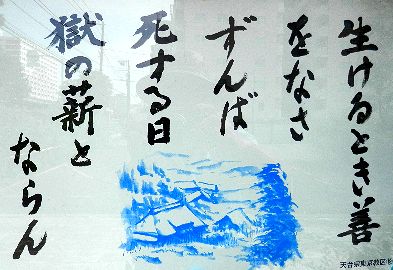 生けるとき善
をなさ
ずんば
死する日
獄の薪と
ならん
天台宗東京教区